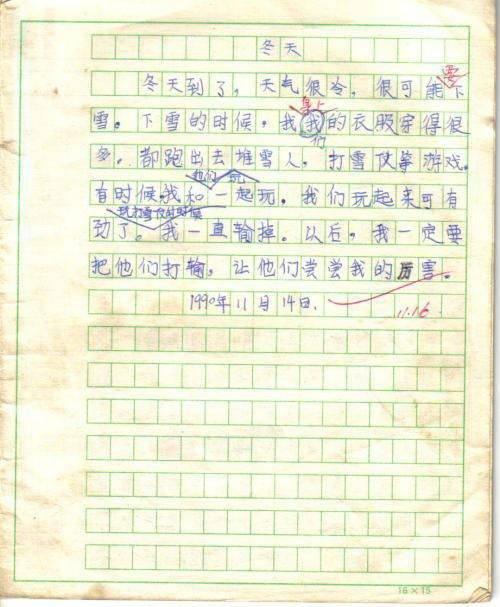 冬天
要
冬天到了，天气很冷，很可能下
身上
雪。下雪的时候，我我的衣服穿得很
们
多。都跑出去堆雪人，打雪仗等游戏。
他们 玩
有时候，我和一起玩。我们玩起来可有
玩打雪仗的时候
劲了。我一直输掉。以后，我一定要
把他们打输，让他们尝尝我的厉害。
1990年11月14日.
11.16
16×15